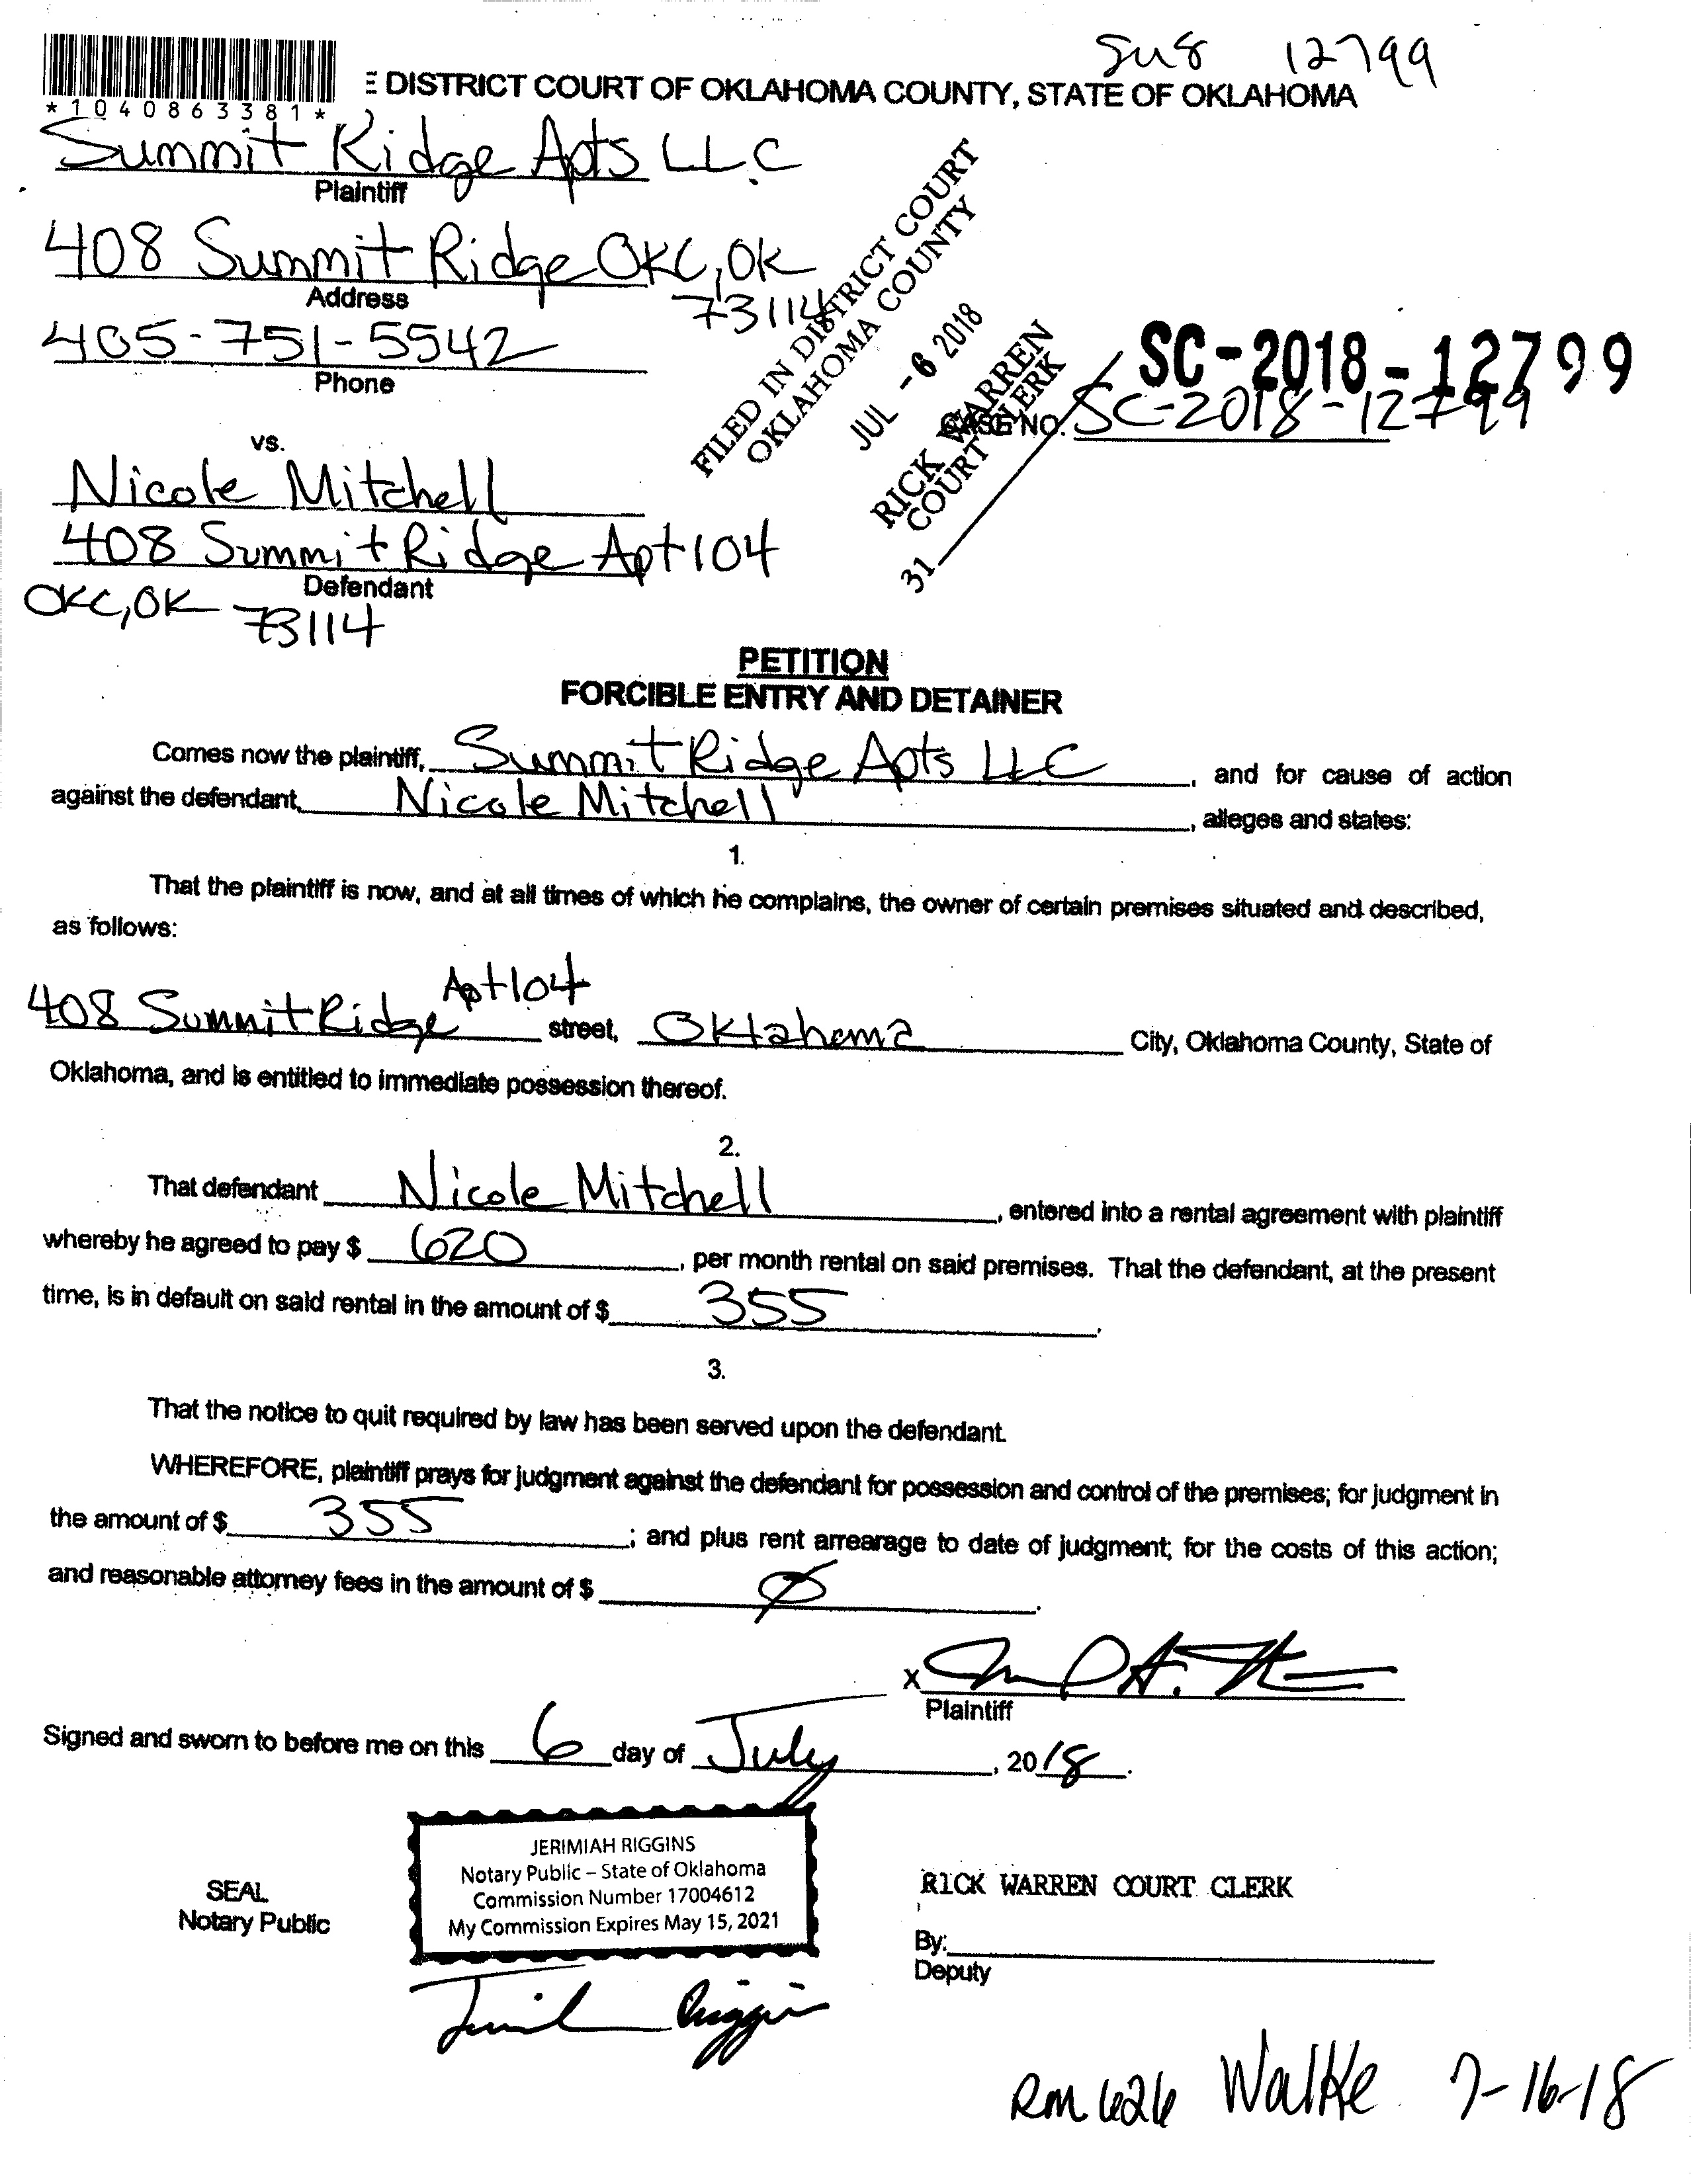 12799
E DISTRICT COURT OF OKLAHOMA COUNTY, STATE OF OKLAHOMA
*1040863381*
Summit Ridge Apts LLC
Plaintiff
408 Summit Ridge OKC, OK
73114
Address
405-751-5542
Phone
FILED IN DISTRICT COURT
OKLAHOMA COUNTY
JUL - 6 2018
RICK WARREN
COURT CLERK
31
SC-2018-12799
CASE NO. SC-2018-12799
vs.
Nicole Mitchell
408 Summit Ridge Apt 104
Defendant
OKC, OK 73114
PETITION
FORCIBLE ENTRY AND DETAINER
Comes now the plaintiff, Summit Ridge Apts LLC, and for cause of action
against the defendant, Nicole Mitchell, alleges and states:
1.
That the plaintiff is now, and at all times of which he complains, the owner of certain premises situated and described,
as follows:
Apt 104
408 Summit Ridge street, Oklahoma City, Oklahoma County, State of
Oklahoma, and is entitled to immediate possession thereof.
2.
That defendant Nicole Mitchell, entered into a rental agreement with plaintiff
whereby he agreed to pay $ 620, per month rental on said premises. That the defendant, at the present
time, is in default on said rental in the amount of $ 355.
3.
That the notice to quit required by law has been served upon the defendant.
WHEREFORE, plaintiff prays for judgment against the defendant for possession and control of the premises; for judgment in
the amount of $ 355; and plus rent arrearage to date of judgment; for the costs of this action;
and reasonable attorney fees in the amount of $ Ø.
X
Plaintiff
Signed and sworn to before me on this 6 day of July, 2018.
JERIMIAH RIGGINS
Notary Public – State of Oklahoma
Commission Number 17004612
My Commission Expires May 15, 2021
SEAL
Notary Public
RICK WARREN COURT CLERK
By:
Deputy
Rm 626 Walke 7-16-18